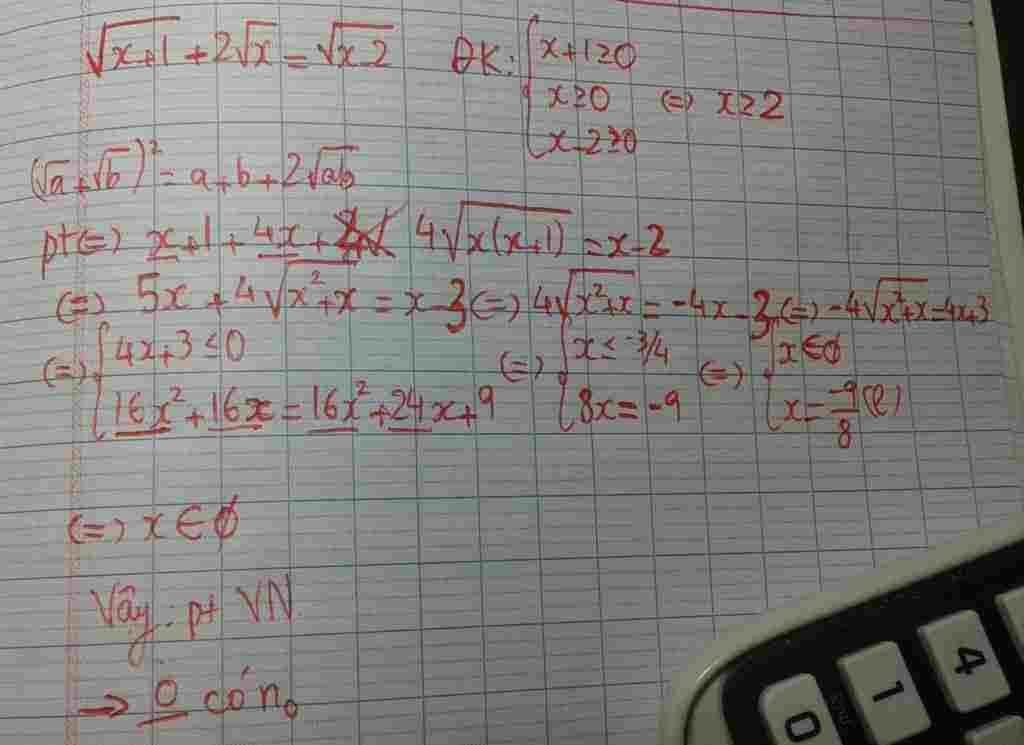 √(x+1) + 2√x = √(x-2) ĐK: { x+1≥0
x≥0 (=) x≥2
x-2≥0
(√a+√b)² = a+b+2√ab
pt(=) x+1+4x+ 4√(x(x+1)) = x-2
(=) 5x+4√(x²+x) = x-3 (=) 4√(x²+x) = -4x-3 (=) -4√(x²+x) = 4x+3
(=) { 4x+3≤0 (=) { x≤-3/4 (=) { x∈∅
16x²+16x=16x²+24x+9 8x=-9 x=-9/8 (l)
(=) x∈∅
Vậy: pt VN
→ 0 có n₀
4
1
0